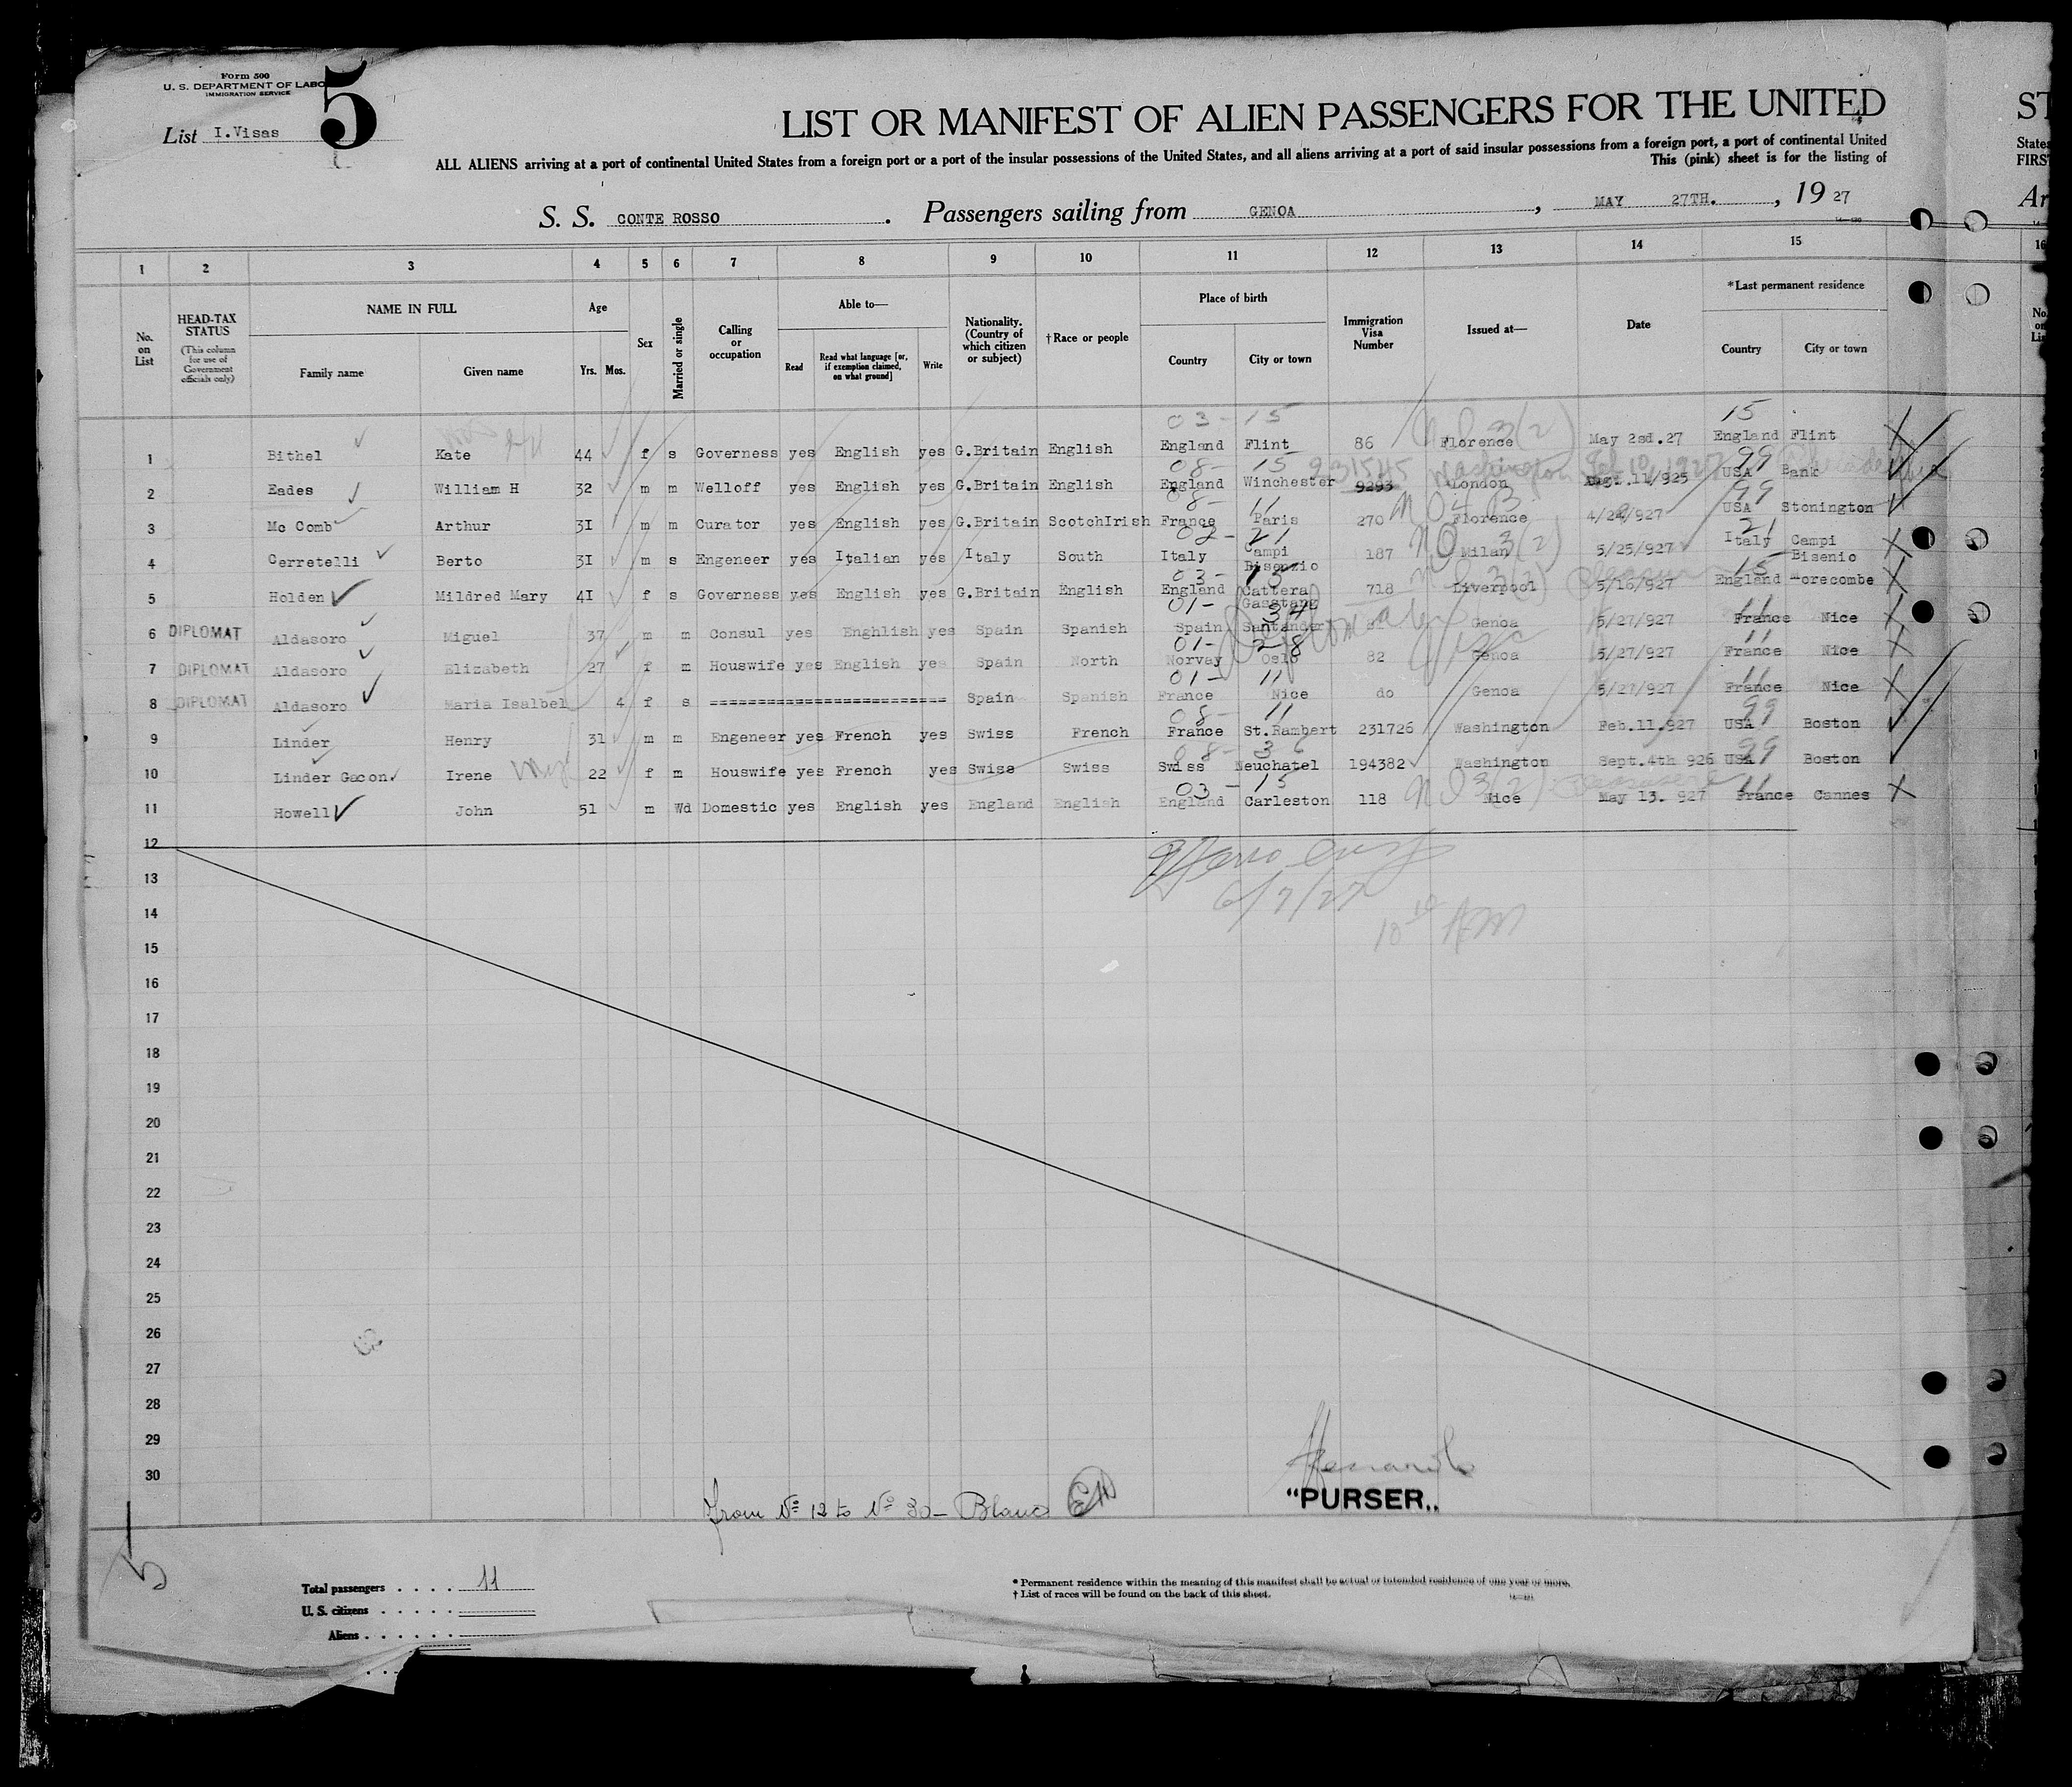 Form 500
U. S. DEPARTMENT OF LABO
IMMIGRATION SERVICE
5
List I.Visas
LIST OR MANIFEST OF ALIEN PASSENGERS FOR THE UNITED
ST
ALL ALIENS arriving at a port of continental United States from a foreign port or a port of the insular possessions of the United States, and all aliens arriving at a port of said insular possessions from a foreign port, a port of continental United
States
This (pink) sheet is for the listing of
FIRS
S. S. CONTE ROSSO . Passengers sailing from GENOA , MAY 27TH. , 19 27
Ar
1 2 3 4 5 6 7 8 9 10 11 12 13 14 15 16
No. on List
HEAD-TAX STATUS (This column for use of Government officials only)
NAME IN FULL
Family name
Given name
Age
Yrs. Mos.
Sex
Married or single
Calling or occupation
Able to—
Read
Read what language [or, if exemption claimed, on what ground]
Write
Nationality. (Country of which citizen or subject)
†Race or people
Place of birth
Country
City or town
Immigration Visa Number
Issued at—
Date
*Last permanent residence
Country
City or town
03 - 15 15
1 Bithel Kate 44 f s Governess yes English yes G.Britain English England Flint 86 Florence May 2sd.27 England Flint
08- 15 231545 Washington Feb 10, 1927 99
2 Eades William H 32 m m Welloff yes English yes G.Britain English England Winchester 9293 London Augt.11/925 USA Bank
08- 11 99
3 Mc Comb Arthur 3I m m Curator yes English yes G.Britain ScotchIrish France Paris 270 Florence 4/24/927 USA Stonington
02- 21 NO 3(2) 21
4 Cerretelli Berto 3I m s Engeneer yes Italian yes Italy South Italy Campi Bisenzio 187 Milan 5/25/927 Italy Campi Bisenio
03- 15 15
5 Holden Mildred Mary 4I f s Governess yes English yes G.Britain English England Cattera Gasstang 718 Liverpool 5/16/927 England Morecombe
01- 34 Diplomatic 11
6 DIPLOMAT Aldasoro Miguel 37 m m Consul yes Enghlish yes Spain Spanish Spain Santander Genoa 5/27/927 France Nice
01- 28 11
7 DIPLOMAT Aldasoro Elizabeth 27 f m Houswife yes English yes Spain North Norvay Oslo 82 Genoa 5/27/927 France Nice
01- 11 11
8 DIPLOMAT Aldasoro Maria Isalbel 4 f s ========================= Spain Spanish France Nice do Genoa 5/27/927 France Nice
08- 11 99
9 Linder Henry 31 m m Engeneer yes French yes Swiss French France St.Rambert 231726 Washington Feb.11.927 USA Boston
08- 36 99
10 Linder Gacon Irene 22 f m Houswife yes French yes Swiss Swiss Swiss Neuchatel 194382 Washington Sept.4th 926 USA Boston
03 - 15 NO 3(2) 11
11 Howell John 51 m Wd Domestic yes English yes England English England Carleston 118 Nice May 13. 927 France Cannes
12
13
6/7/27
14
10 10 AM
15
16
17
18
19
20
21
22
23
24
25
26
27
28
29
30
from No 12 to No 30 — Blanc
"PURSER„
5
Total passengers . . . . 11
U. S. citizens . . . . .
Aliens . . . . . .
* Permanent residence within the meaning of this manifest shall be actual or intended residence of one year or more.
† List of races will be found on the back of this sheet.